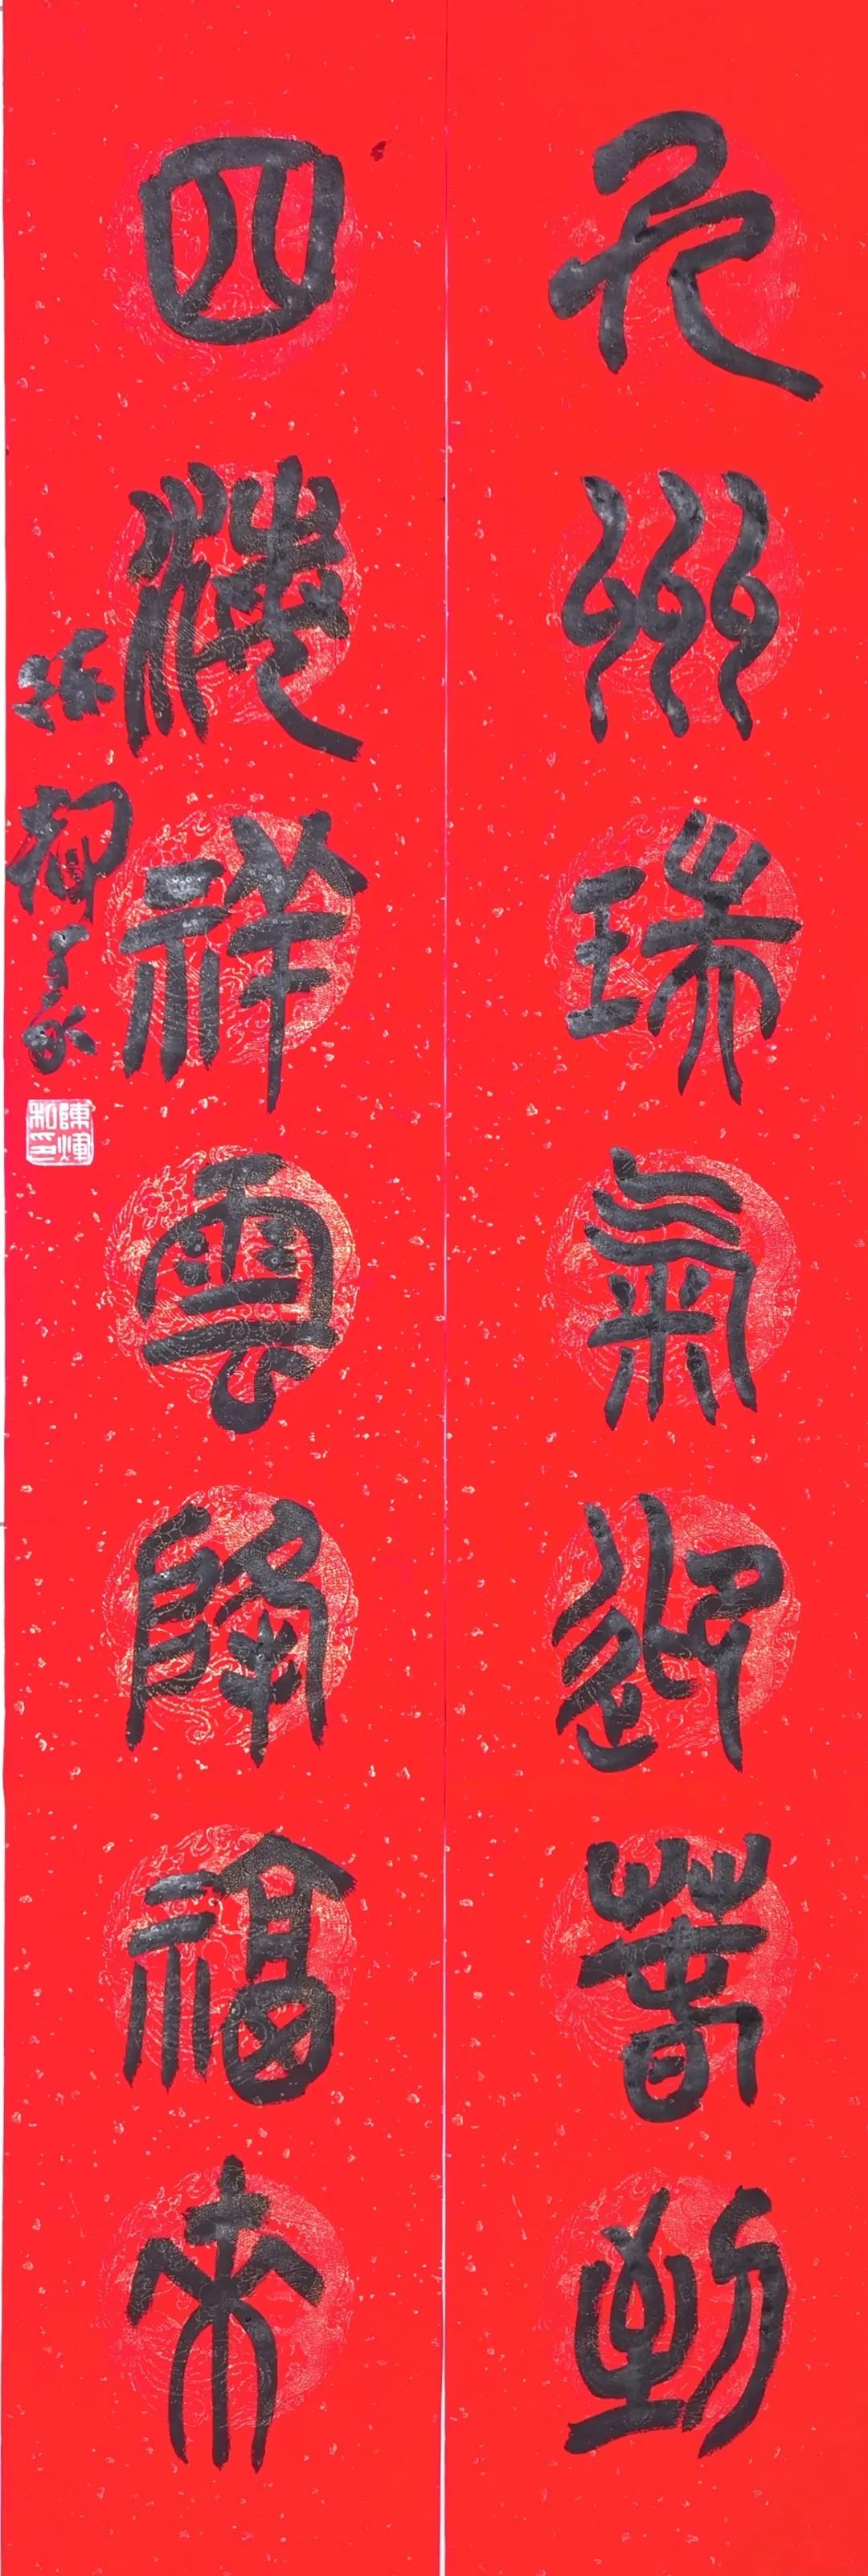 九州瑞氣迎春到
四海祥雲降福來
陳煇
印